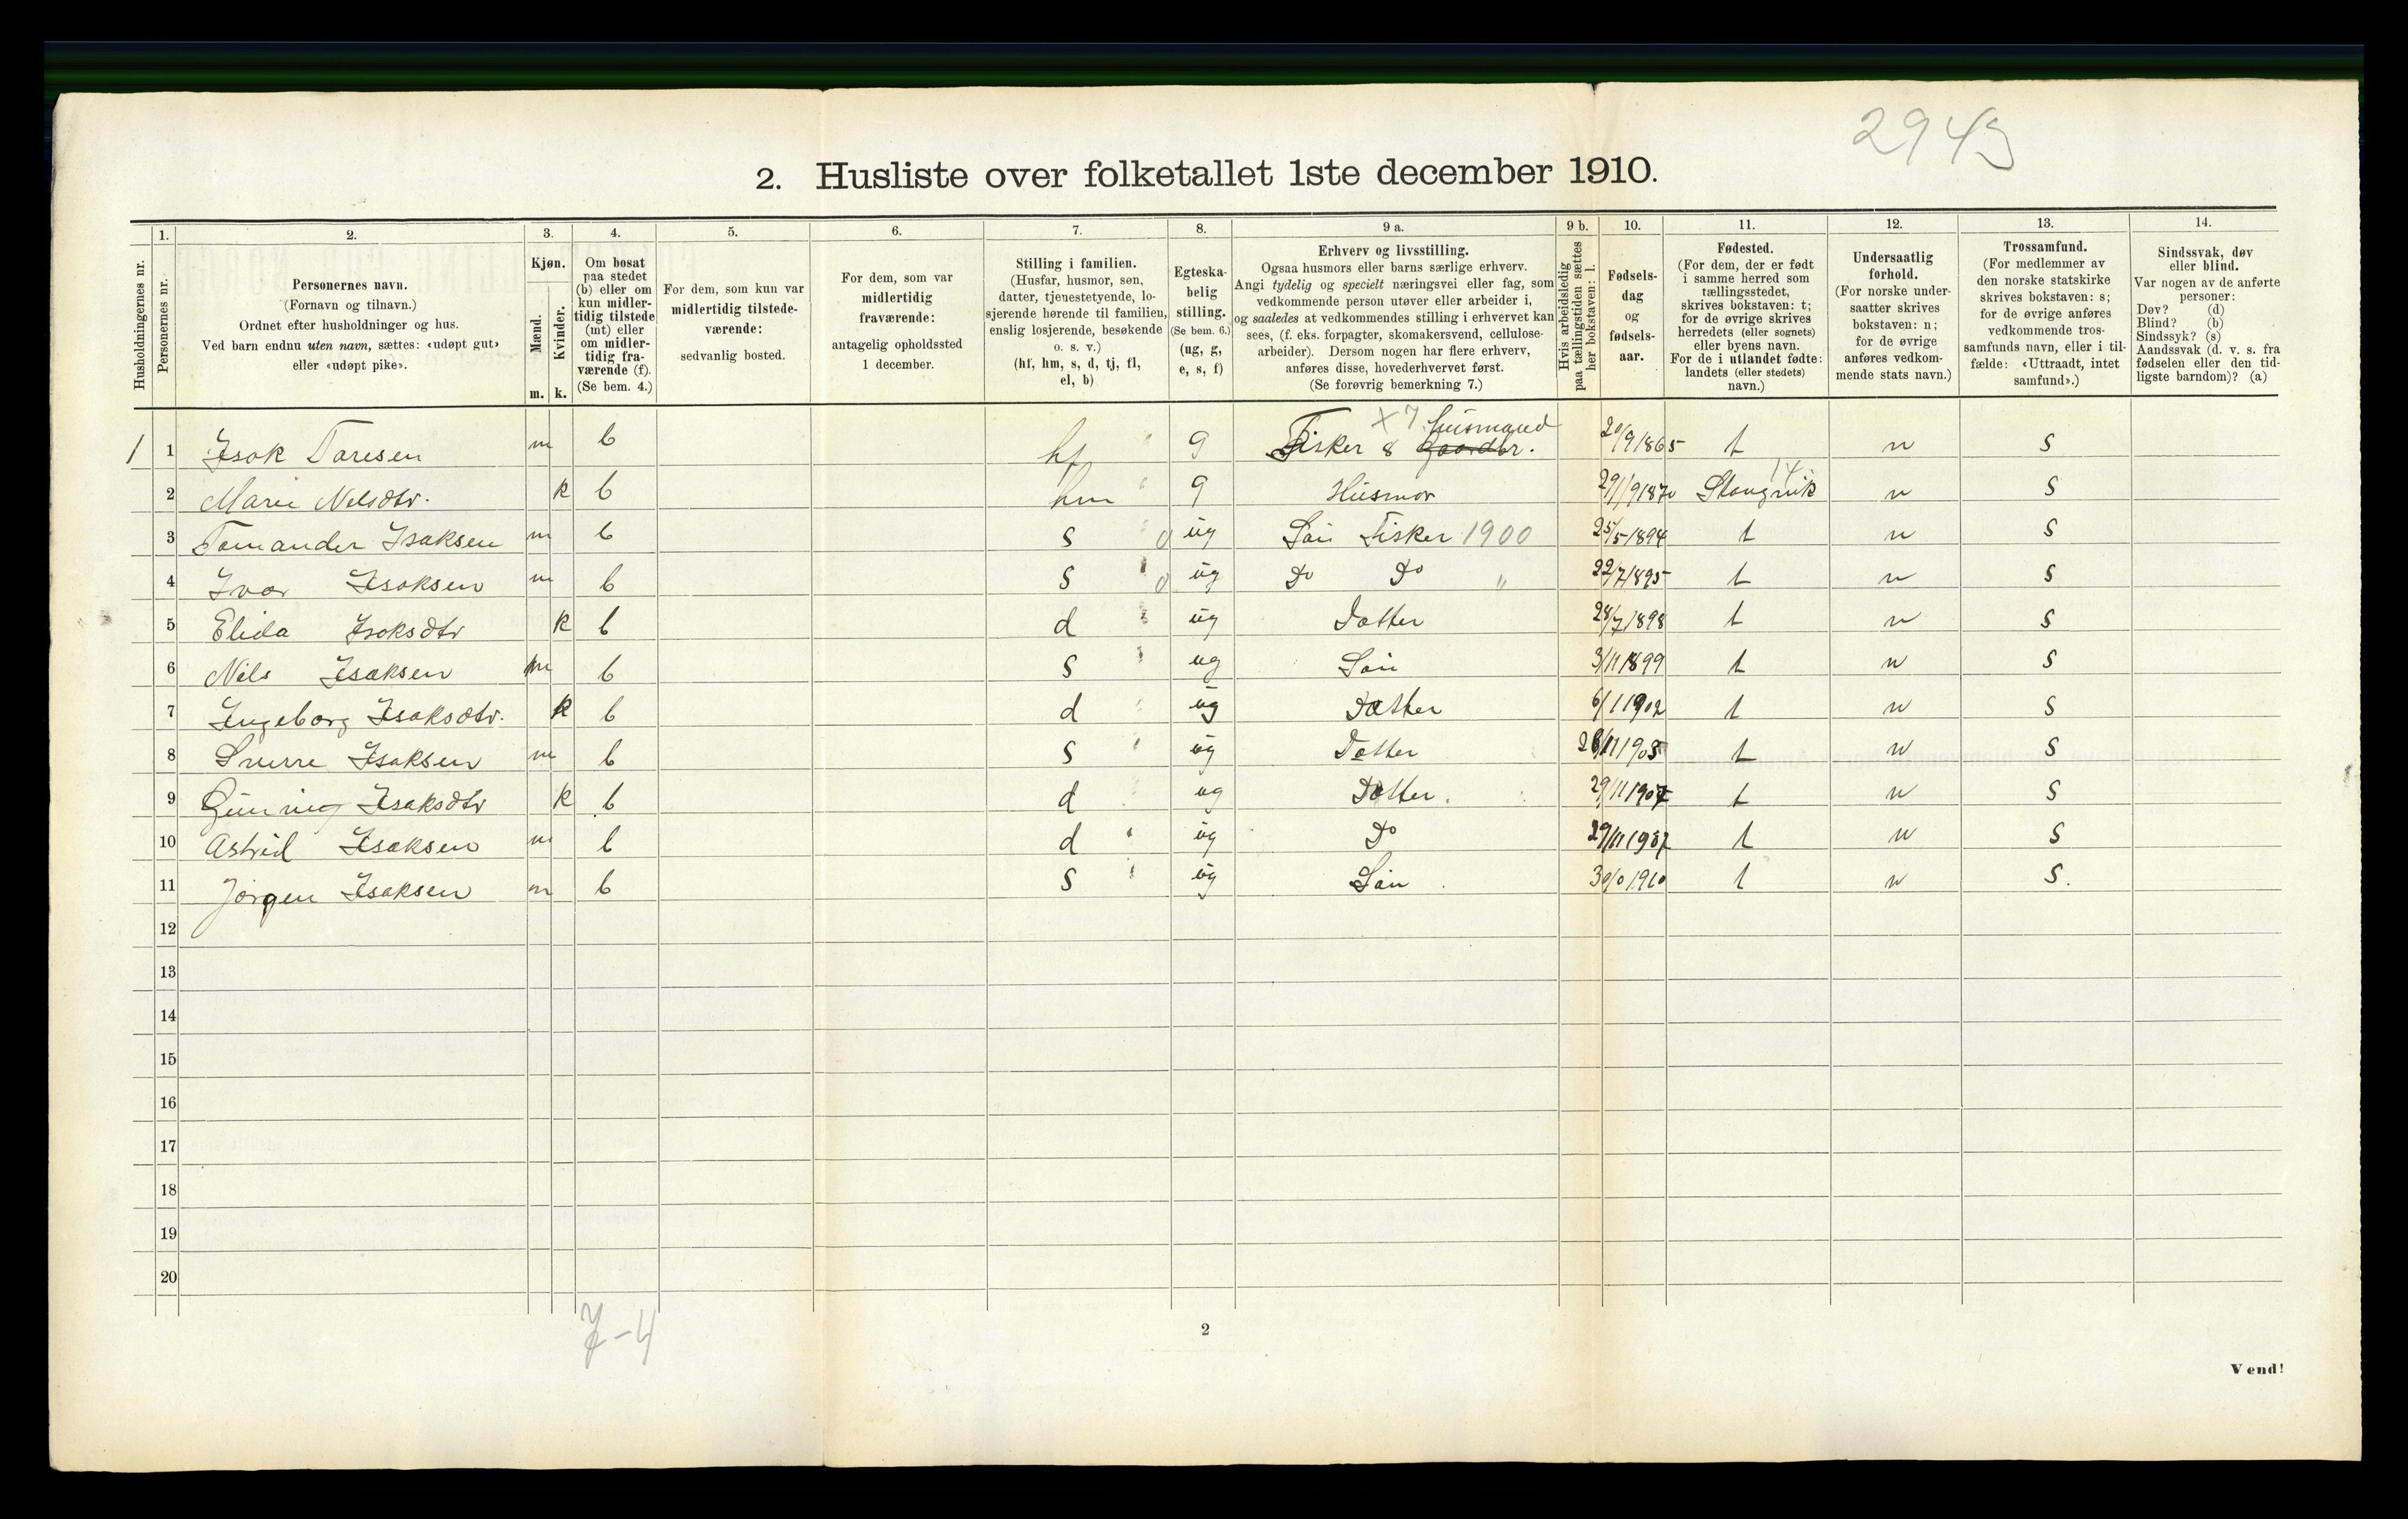 2943
2. Husliste over folketallet 1ste december 1910.
Husholdningernes nr.
1.
Personernes nr.
2.
Personernes navn.
(Fornavn og tilnavn.)
Ordnet efter husholdninger og hus.
Ved barn endnu uten navn, sættes: «udøpt gut»
eller «udøpt pike».
3.
Kjøn.
Mænd.
Kvinder.
m. k.
4.
Om bosat
paa stedet
(b) eller om
kun midler-
tidig tilstede
(mt) eller
om midler-
tidig fra-
værende (f).
(Se bem. 4.)
5.
For dem, som kun var
midlertidig tilstede-
værende:
sedvanlig bosted.
6.
For dem, som var
midlertidig
fraværende:
antagelig opholdssted
1 december.
7.
Stilling i familien.
(Husfar, husmor, søn,
datter, tjenestetyende, lo-
sjerende hørende til familien,
enslig losjerende, besøkende
o. s. v.)
(hf, hm, s, d, tj, fl,
el, b)
8.
Egteska-
belig
stilling.
(Se bem. 6.)
(ug, g,
e, s, f)
9 a.
Erhverv og livsstilling.
Ogsaa husmors eller barns særlige erhverv.
Angi tydelig og specielt næringsvei eller fag, som
vedkommende person utøver eller arbeider i,
og saaledes at vedkommendes stilling i erhvervet kan
sees, (f. eks. forpagter, skomakersvend, cellulose-
arbeider). Dersom nogen har flere erhverv,
anføres disse, hovederhvervet først.
(Se forøvrig bemerkning 7.)
9 b.
Hvis arbeidsledig
paa tællingstiden sættes
her bokstaven: l.
10.
Fødsels-
dag
og
fødsels-
aar.
11.
Fødested.
(For dem, der er født
i samme herred som
tællingsstedet,
skrives bokstaven: t;
for de øvrige skrives
herredets (eller sognets)
eller byens navn.
For de i utlandet fødte:
landets (eller stedets)
navn.)
12.
Undersaatlig
forhold.
(For norske under-
saatter skrives
bokstaven: n;
for de øvrige
anføres vedkom-
mende stats navn.)
13.
Trossamfund.
(For medlemmer av
den norske statskirke
skrives bokstaven: s;
for de øvrige anføres
vedkommende tros-
samfunds navn, eller i til-
fælde: «Uttraadt, intet
samfund».)
14.
Sindssvak, døv
eller blind.
Var nogen av de anførte
personer:
Døv? (d)
Blind? (b)
Sindssyk? (s)
Aandssvak (d. v. s. fra
fødselen eller den tid-
ligste barndom)? (a)
X 7. husmand
1 1 Isak Taresen m b hf g Fisker & Gaardbr. 20/9 1865 t n s
14
2 Marie Nelsdtr. k b hm g Husmor 29/9 1870 Stangvik n s
3 Tomander Isaksen m b s 0 ug Søn Fisker 1900 25/5 1894 t n s
4 Ivar Isaksen m b s 0 ug Do Do " 22/7 1895 t n s
5 Elida Isaksdtr k b d ug Datter 28/7 1898 t n s
6 Nils Isaksen m b s ug Søn 3/11 1899 t n s
7 Ingeborg Isaksdtr. k b d ug Datter 6/1 1902 t n s
8 Sverre Isaksen m b s ug Datter t n s
9 Isaksdtr k b d ug Datter. 29/11 1907 t n s
10 Astrid Isaksen m b d ug Do 29/11 1907 t n s
11 Jørgen Isaksen m b s ug Søn t n s.
12
13
14
15
16
17
18
19
20
7-4
2
Vend!